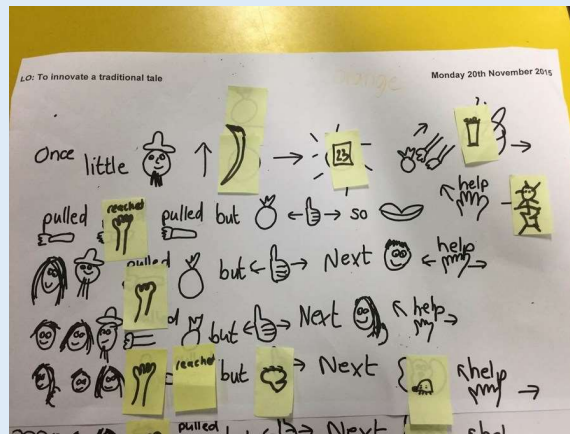 LO: To innovate a traditional tale Orange Monday 20th November 2015
Once little 23
help
pulled reached pulled but so
pulled but Next help
but Next help
reached but Next help
pulled but Next